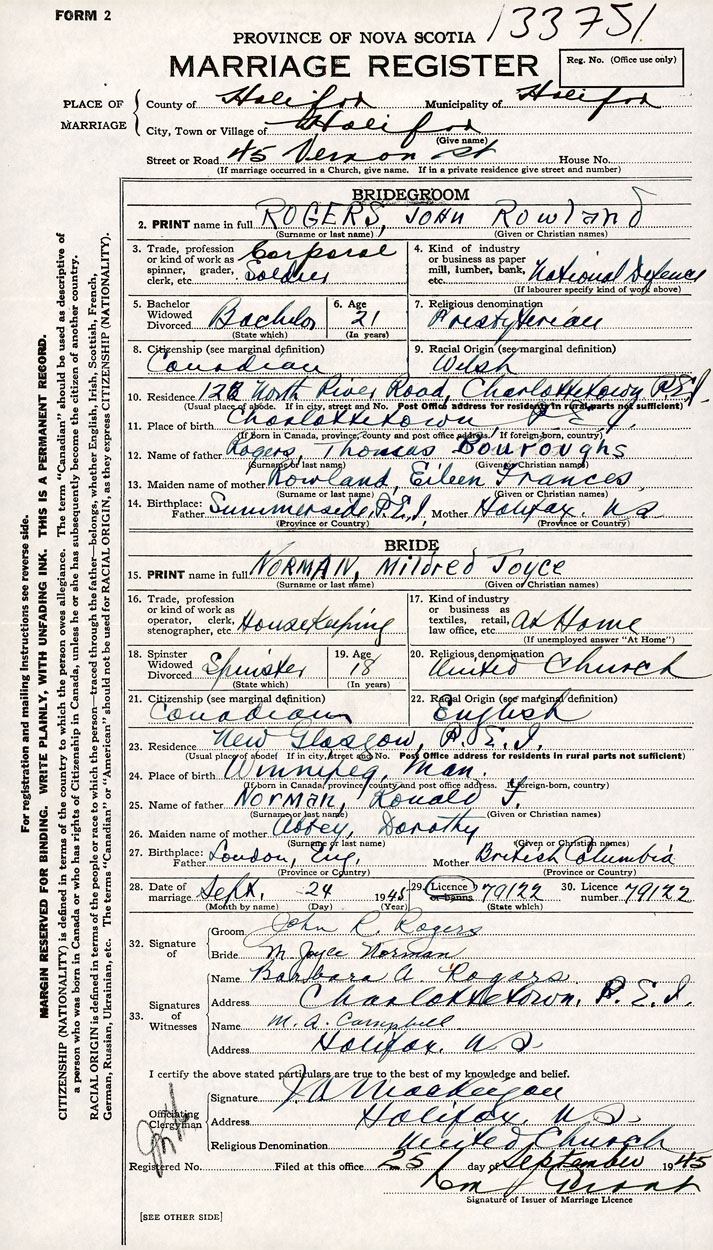 FORM 2
133751
PROVINCE OF NOVA SCOTIA
MARRIAGE REGISTER
Reg. No. (Office use only)
PLACE OF MARRIAGE
County of Halifax Municipality of Halifax
City, Town or Village of Halifax
(Give name)
Street or Road 45 Vernon St House No.
(If marriage occurred in a Church, give name. If in a private residence give street and number)
BRIDEGROOM
2. PRINT name in full ROGERS, JOHN Rowland
(Surname or last name) (Given or Christian names)
3. Trade, profession or kind of work as spinner, grader, clerk, etc. Corporal Soldier
4. Kind of industry or business as paper mill, lumber, bank, etc. National Defence
(If labourer specify kind of work above)
5. Bachelor Widowed Divorced Bachelor
(State which)
6. Age 21
(In years)
7. Religious denomination
Presbyterian
8. Citizenship (see marginal definition)
Canadian
9. Racial Origin (see marginal definition)
Welsh
10. Residence 128 North River Road, Charlottetown P.E.I.
(Usual place of abode. If in city, street and No. Post Office address for residents in rural parts not sufficient)
11. Place of birth Charlottetown P.E.I.
(If born in Canada, province, county and post office address. If foreign-born, country)
12. Name of father Rogers, Thomas Bouroughs
(Surname or last name) (Given or Christian names)
13. Maiden name of mother Rowland, Eileen Frances
(Surname or last name) (Given or Christian names)
14. Birthplace: Father Summerside, P.E.I. Mother Halifax. NS
(Province or Country) (Province or Country)
BRIDE
15. PRINT name in full NORMAN, Mildred Joyce
(Surname or last name) (Given or Christian names)
16. Trade, profession or kind of work as operator, clerk, stenographer, etc. Housekeeping
17. Kind of industry or business as textiles, retail, law office, etc. At Home
(If unemployed answer "At Home")
18. Spinster Widowed Divorced Spinster
(State which)
19. Age 18
(In years)
20. Religious denomination
United Church
21. Citizenship (see marginal definition)
Canadian
22. Racial Origin (see marginal definition)
English
23. Residence New Glasgow, P.E.I.
(Usual place of abode If in city, street and No. Post Office address for residents in rural parts not sufficient)
24. Place of birth Winnipeg, Man.
(If born in Canada, province county and post office address. If foreign-born, country)
25. Name of father Norman, Ronald F.
(Surname or last name) (Given or Christian names)
26. Maiden name of mother Abbey, Dorothy
(Surname or last name) (Given or Christian names)
27. Birthplace: Father London, Eng. Mother British Columbia
(Province or Country) (Province or Country)
28. Date of marriage Sept. 24 1945
(Month by name) (Day) (Year)
29. Licence or banns 79122
(State which)
30. Licence number 79122
32. Signature of
Groom John R. Rogers
Bride M. Joyce Norman
33. Signatures of Witnesses
Name Barbara A Rogers
Address Charlottetown, P.E.I.
Name M. A. Campbell
Address Halifax. NS
I certify the above stated particulars are true to the best of my knowledge and belief.
Officiating Clergyman
Signature
Address Halifax, NS
Religious Denomination United Church
Registered No. Filed at this office 25 day of September 1945
Grant
Signature of Issuer of Marriage Licence
[SEE OTHER SIDE]
For registration and mailing instructions see reverse side.
MARGIN RESERVED FOR BINDING. WRITE PLAINLY, WITH UNFADING INK. THIS IS A PERMANENT RECORD.
CITIZENSHIP (NATIONALITY) is defined in terms of the country to which the person owes allegiance. The term "Canadian" should be used as descriptive of
a person who was born in Canada or who has rights of Citizenship in Canada, unless he or she has subsequently become the citizen of another country.
RACIAL ORIGIN is defined in terms of the people or race to which the person—traced through the father—belongs, whether English, Irish, Scottish, French,
German, Russian, Ukrainian, etc. The terms "Canadian" or "American" should not be used for RACIAL ORIGIN, as they express CITIZENSHIP (NATIONALITY).